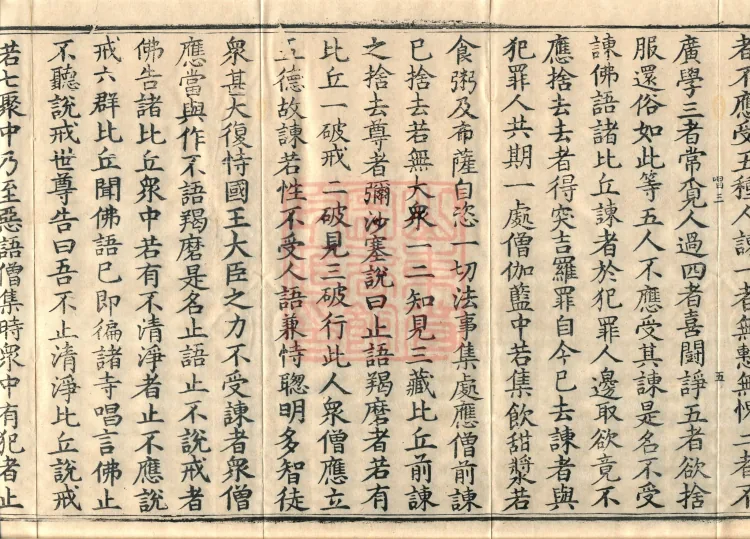 者不應受五種人諫一者無慙無愧二者不
唱三 五
廣學三者常覓人過四者喜鬪諍五者欲捨
服還俗如此等五人不應受其諫是名不受
諫佛語諸比丘諫者於犯罪人邊取欲竟不
應捨去去者得突吉羅罪自今已去諫者與
犯罪人共期一處僧伽藍中若集飲甜漿若
食粥及布薩自恣一切法事集處應僧前諫
已捨去若無大衆一二知見三藏比丘前諫
之捨去尊者彌沙塞說曰止語羯磨者若有
比丘一破戒二破見三破行此人衆僧應立
五德故諫若性不受人語兼恃聦明多智徒
衆甚大復恃國王大臣之力不受諫者衆僧
應當與作不語羯磨是名止語止不說戒者
佛告諸比丘衆中若有不清淨者止不應說
戒六群比丘聞佛語已即徧諸寺唱言佛止
不聽說戒世尊告曰吾不止清淨比丘說戒
若七聚中乃至惡語僧集時衆中有犯者止